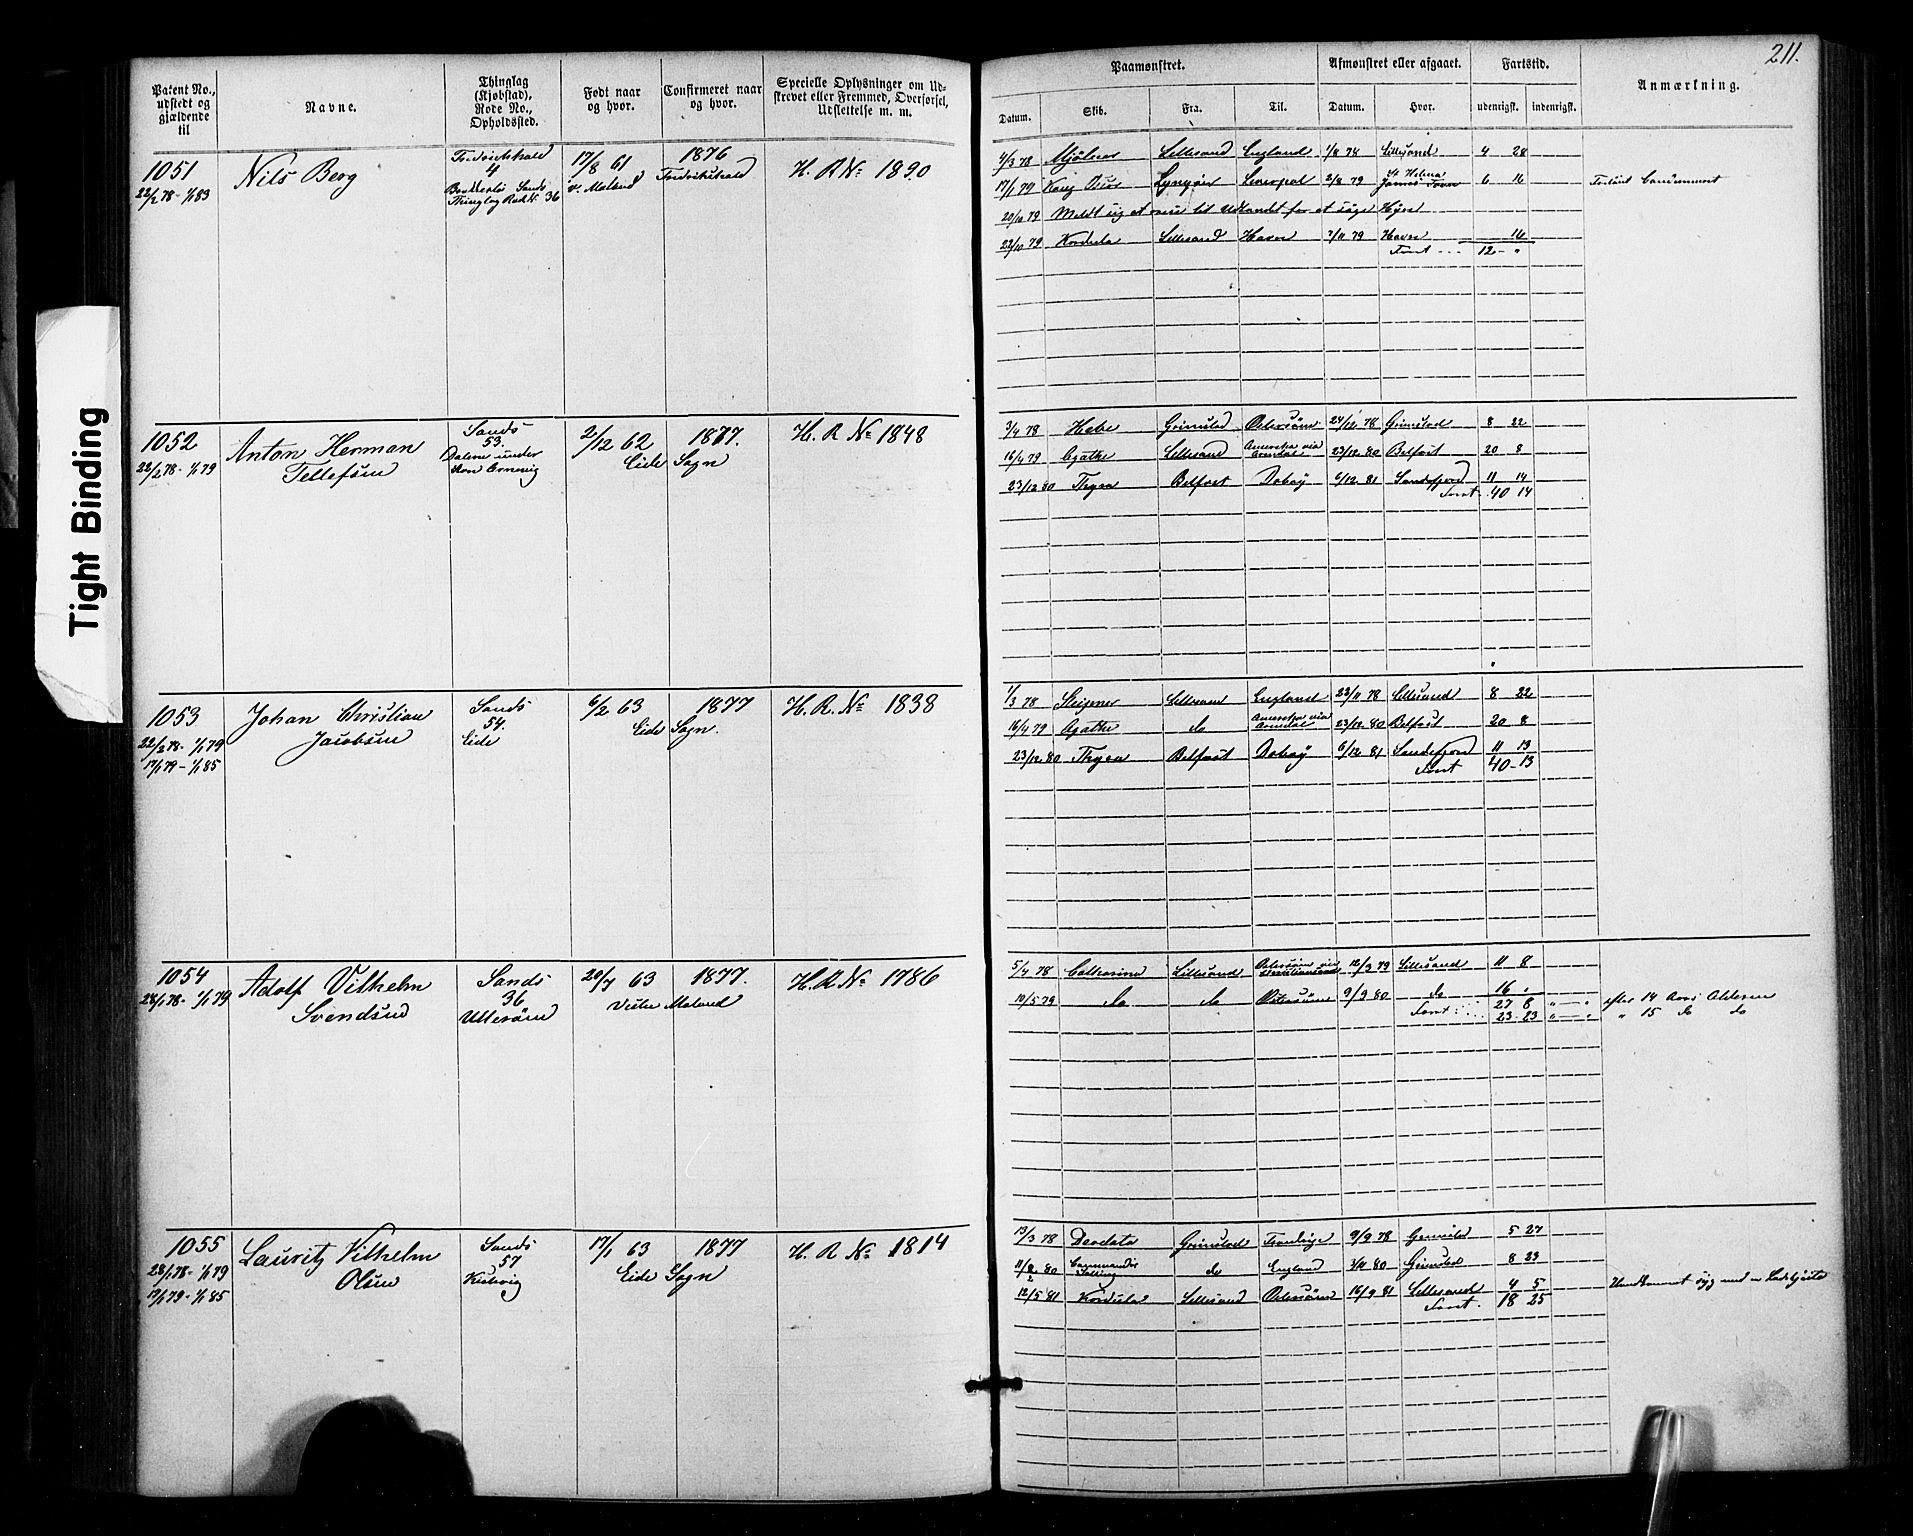 211.
Tight Binding
Patent No., udstedt og gjældende til
Navne.
Thinglag (Kjøbstad), Rode No., Opholdssted.
Født naar og hvor.
Confirmeret naar og hvor.
Specielle Oplysninger om Udskrevet eller Fremmed, Overførsel, Udslettelse m. m.
Paamønstret.
Afmønstret eller afgaaet.
Fartstid.
Anmærkning.
Datum. Skib. Fra. Til. Datum. Hvor. udenrigsk. indenrigsk.
1051 Nils Berg 4 17/8 61 1876 H. R No 1890
22/2 78 - 1/1 83 Thinglag Rode No 36 v. Moland Fredrikshald
4/3 78 Mjølner Lillesand England 1/8 78 Lillesand 4 28
17/1 79 Lyngør Liverpool 2/8 79 St Helena James Town 6 16
20/10 79 Meldt sig at reise til Udlandet for at søge Hyre
22/10 79 Kordula Lillesand Havre 7/11 79 Havre 16
12 - "
1052 Anton Herman Tellefsen Sands 53. 2/12 62 1877. H. R No 1848
22/2 78 - 1/1 79 Dalene under Eide Sogn
3/4 78 Hebe Grimstad Østersøen 24/12 78 Grimstad 8 22
16/4 79 Agathe Lillesand Amerika via Arendal 23/12 80 Belfast 20 8
23/12 80 Thyra Belfast Doboy 6/12 81 Sandefjord 11 14
40 14
1053 Johan Christian Jacobsen Sands 54. Eide 6/2 63 1877 Eide Sogn. H. R. No 1838
22/2 78 - 1/1 79
17/1 79 - 1/1 85
1/3 78 Lillesand England 23/11 78 Lillesand 8 22
16/4 79 Agathe do Amerika via Arendal 23/12 80 Belfast 20 8
23/12 80 Thyra Belfast Doboy 6/12 81 Sandefjord 11 13
40 - 13
1054 Adolf Vilhelm Svendsen Sands 36 Ulleøen 20/7 63 1877. Vestre Moland H. R No 1786
28/2 78 - 1/1 79
5/4 78 Catharina Lillesand Østersøen via 12/3 79 Lillesand 11 8
10/5 79 do do Østersøen 9/9 80 do 16 "
27 8 " - " efter 14 Aars Alderen
23 - 23 " - " " 15 do do
1055 Lauritz Vilhelm Olsen Sands 57 17/1 63 1877 Eide Sogn H. R No 1814
28/2 78 - 1/1 79
17/1 79 - 1/1 85
13/3 78 Deodata Grimstad 9/9 78 5 27
11/2 80 do England 3/11 80 Grimstad 8 23
12/5 81 Kordula Lillesand Østersøen 16/9 81 Lillesand 4 5
18 25